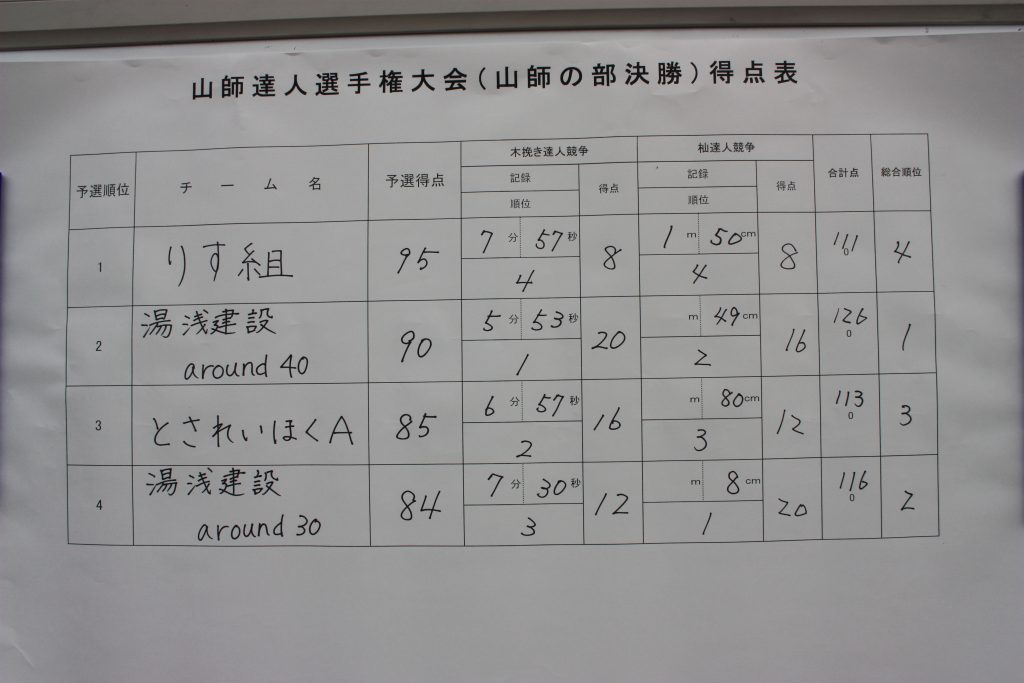 山師達人選手権大会(山師の部決勝)得点表
予選順位 チーム名 予選得点 木挽き達人競争 杣達人競争 合計点 総合順位
記録 得点 記録 得点
順位 順位
1 りす組 95 7分57秒 8 1m50cm 8 111 4
0
4 4
2 湯浅建設 90 5分53秒 20 m49cm 16 126 1
around 40 1 2 0
3 とされいほくA 85 6分57秒 16 m80cm 12 113 3
0
2 3
4 湯浅建設 84 7分30秒 12 m8cm 20 116 2
around 30 3 1 0